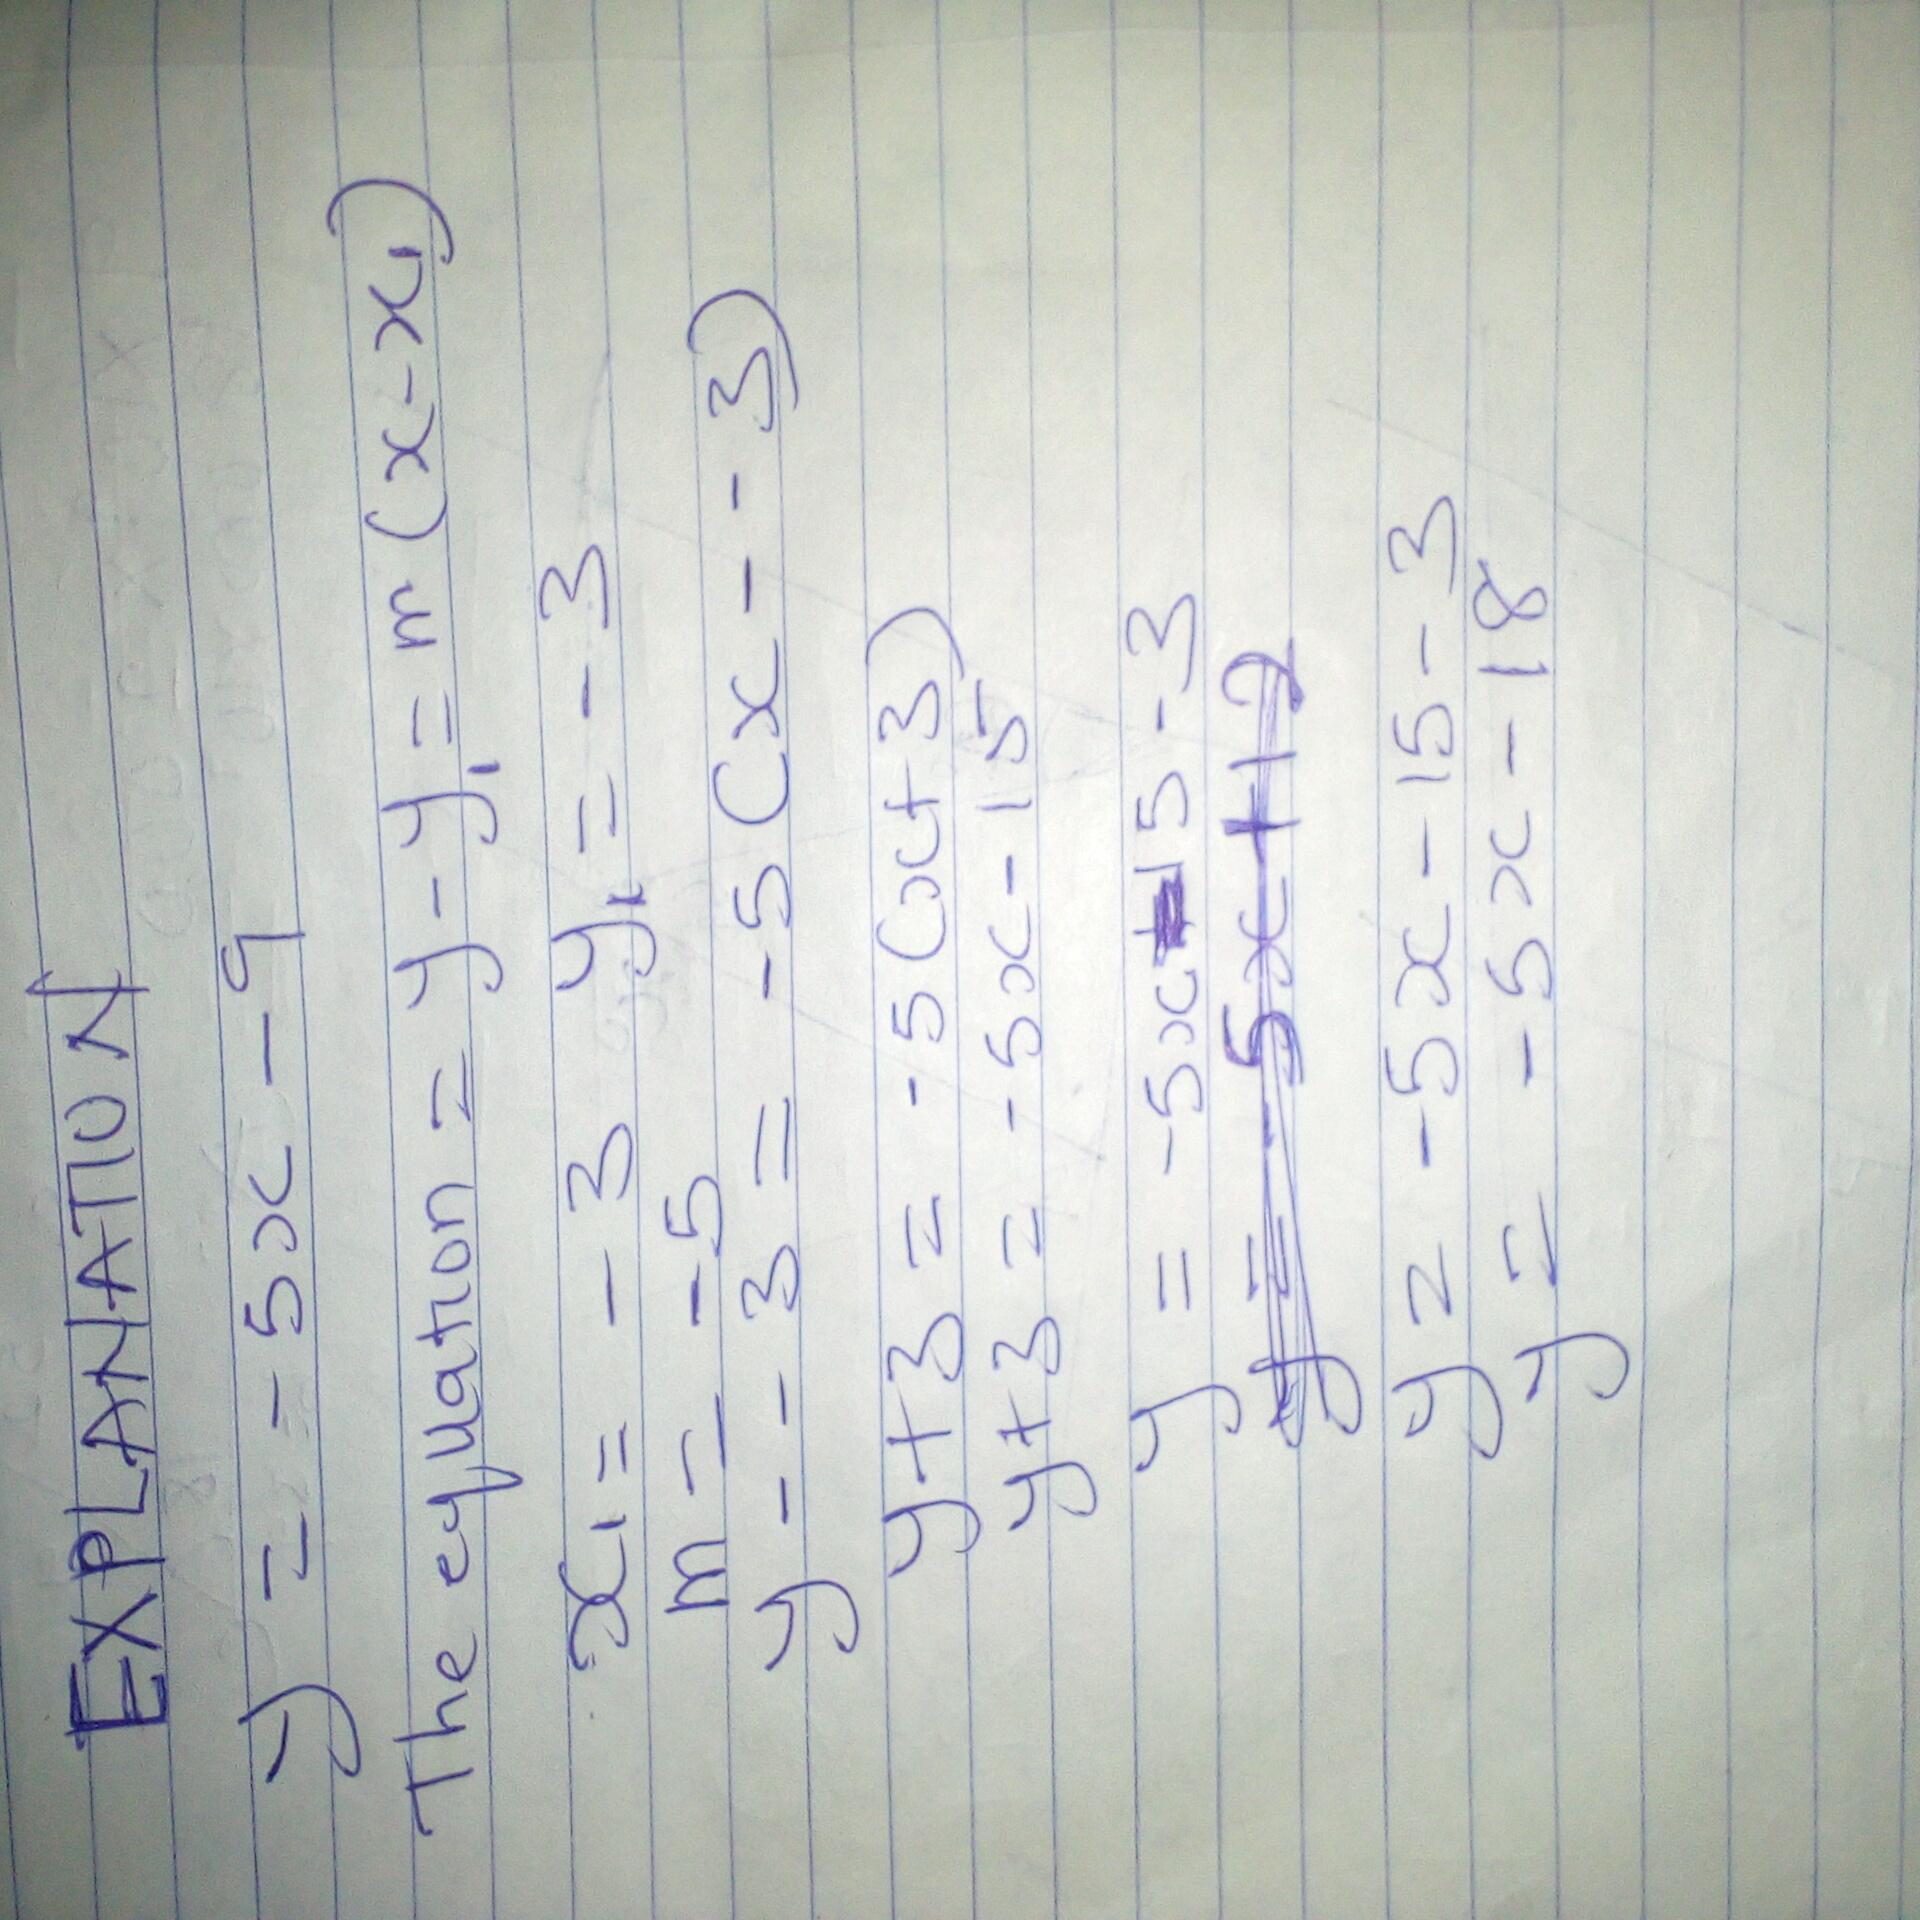 EXPLANATION
y = -5x - 9
The equation = y - y₁ = m (x - x₁)
x₁ = -3 y₁ = -3
m = -5
y - - 3 = -5 (x - - 3)
y + 3 = -5 (x + 3)
y + 3 = -5x - 15
y = -5x - 15 - 3
y = -5x + 12
y = -5x - 15 - 3
y = -5x - 18